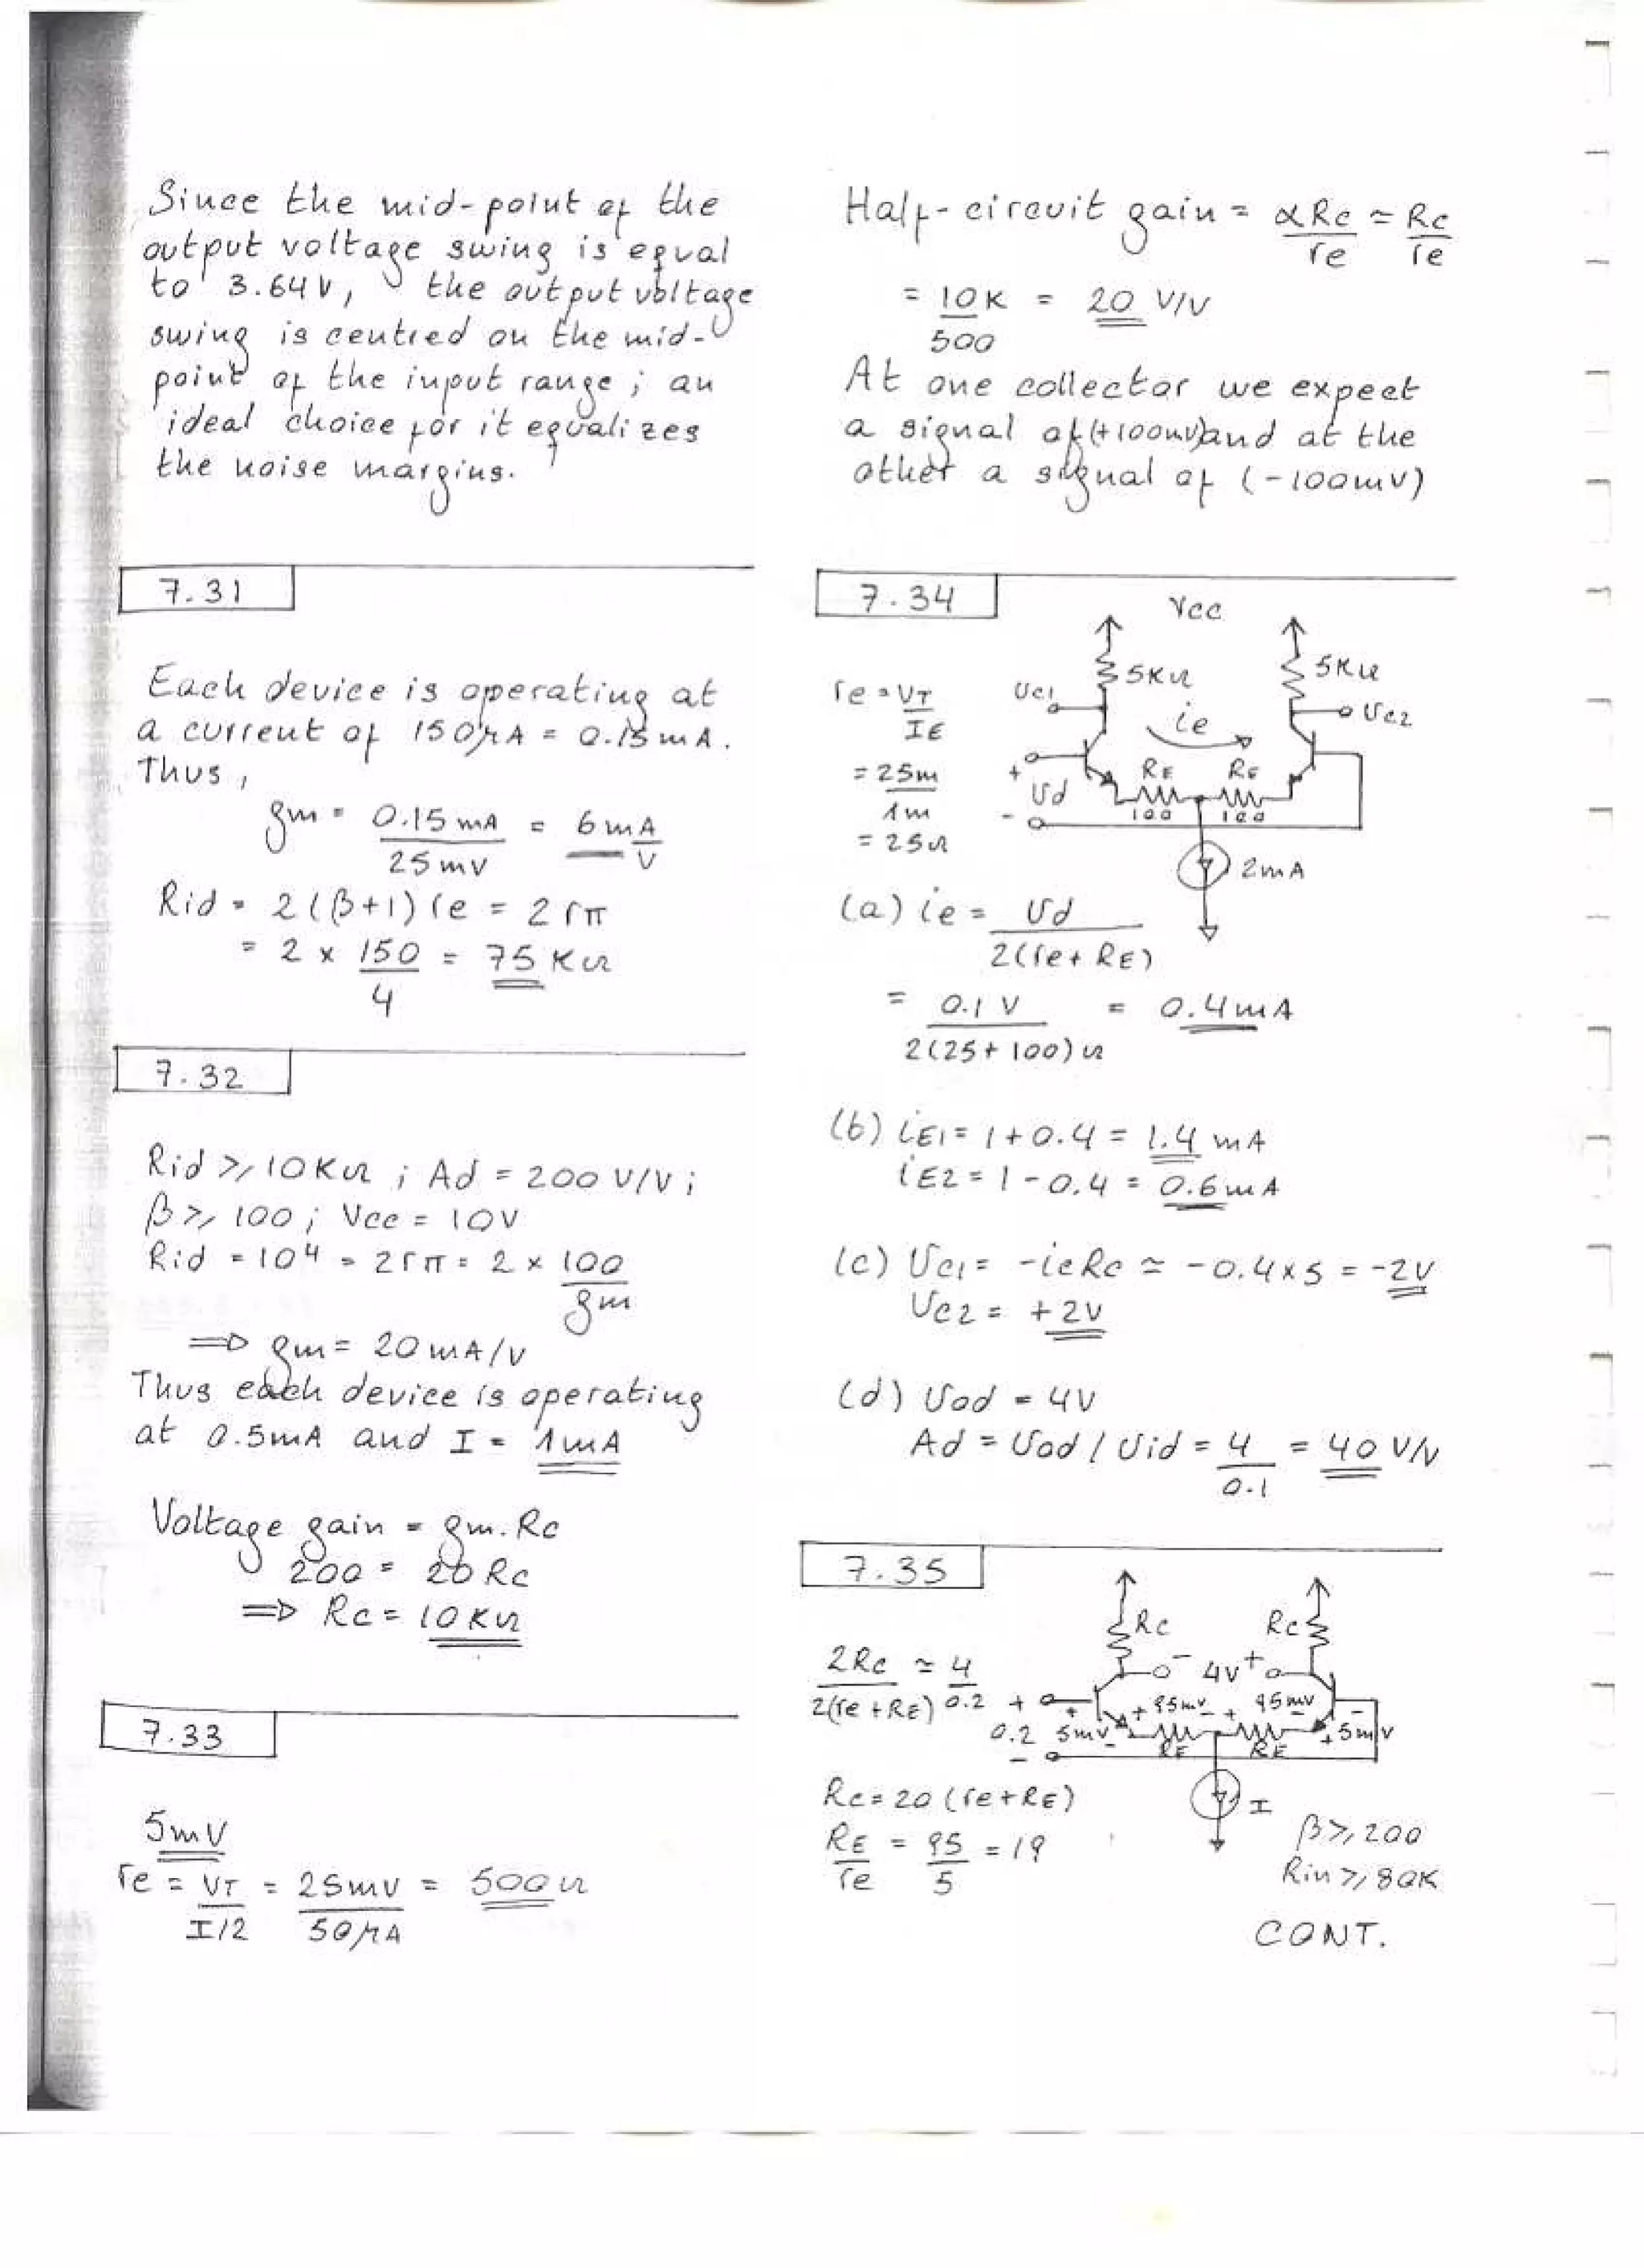 Since the mid-point of the
output voltage swing is equal
to 3.64V, the output voltage
swing is centred on the mid-
point of the input range; an
ideal choice for it equalizes
the noise margins.
7.31
Each device is operating at
a current of 150μA = 0.15mA.
Thus,
gm = 0.15mA / 25mV = 6 mA/V
Rid = 2(β+1)re = 2rπ
= 2 × 150/4 = 75KΩ
7.32
Rid ≥ 10KΩ ; Ad = 200 V/V ;
β ≥ 100 ; Vcc = 10V
Rid = 10⁴ = 2rπ = 2 × 100/gm
⇒ gm = 20mA/V
Thus each device is operating
at 0.5mA and I = 1mA
Voltage gain = gm.Rc
200 = 20Rc
⇒ Rc = 10KΩ
7.33
5mV
re = VT / I/2 = 25mV / 50μA = 500Ω
Half-circuit gain = αRc/re ≃ Rc/re
= 10K/500 = 20 V/V
At one collector we expect
a signal of (+100mV) and at the
other a signal of (-100mV)
7.34
Vcc
5KΩ 5KΩ
vc1 vc2
ie
RE RE
100 100
+ vd -
2mA
re = VT/IE
= 25m/1m
= 25Ω
(a) ie = vd / 2(re+RE)
= 0.1V / 2(25+100)Ω = 0.4mA
(b) iE1 = 1+0.4 = 1.4 mA
iE2 = 1-0.4 = 0.6mA
(c) vc1 = -ieRc ≃ -0.4×5 = -2V
vc2 = +2V
(d) vod = 4V
Ad = vod / vid = 4/0.1 = 40 V/V
7.35
Rc Rc
- 4V +
2Rc / 2(re+RE) ≃ 4/0.2
+ 0.2 -
+ 5mV - + 95mV - + 95mV - + 5mV -
RE RE
I
Rc = 20(re+RE)
RE/re = 95/5 = 19
β ≥ 200
Rin ≥ 80K
CONT.